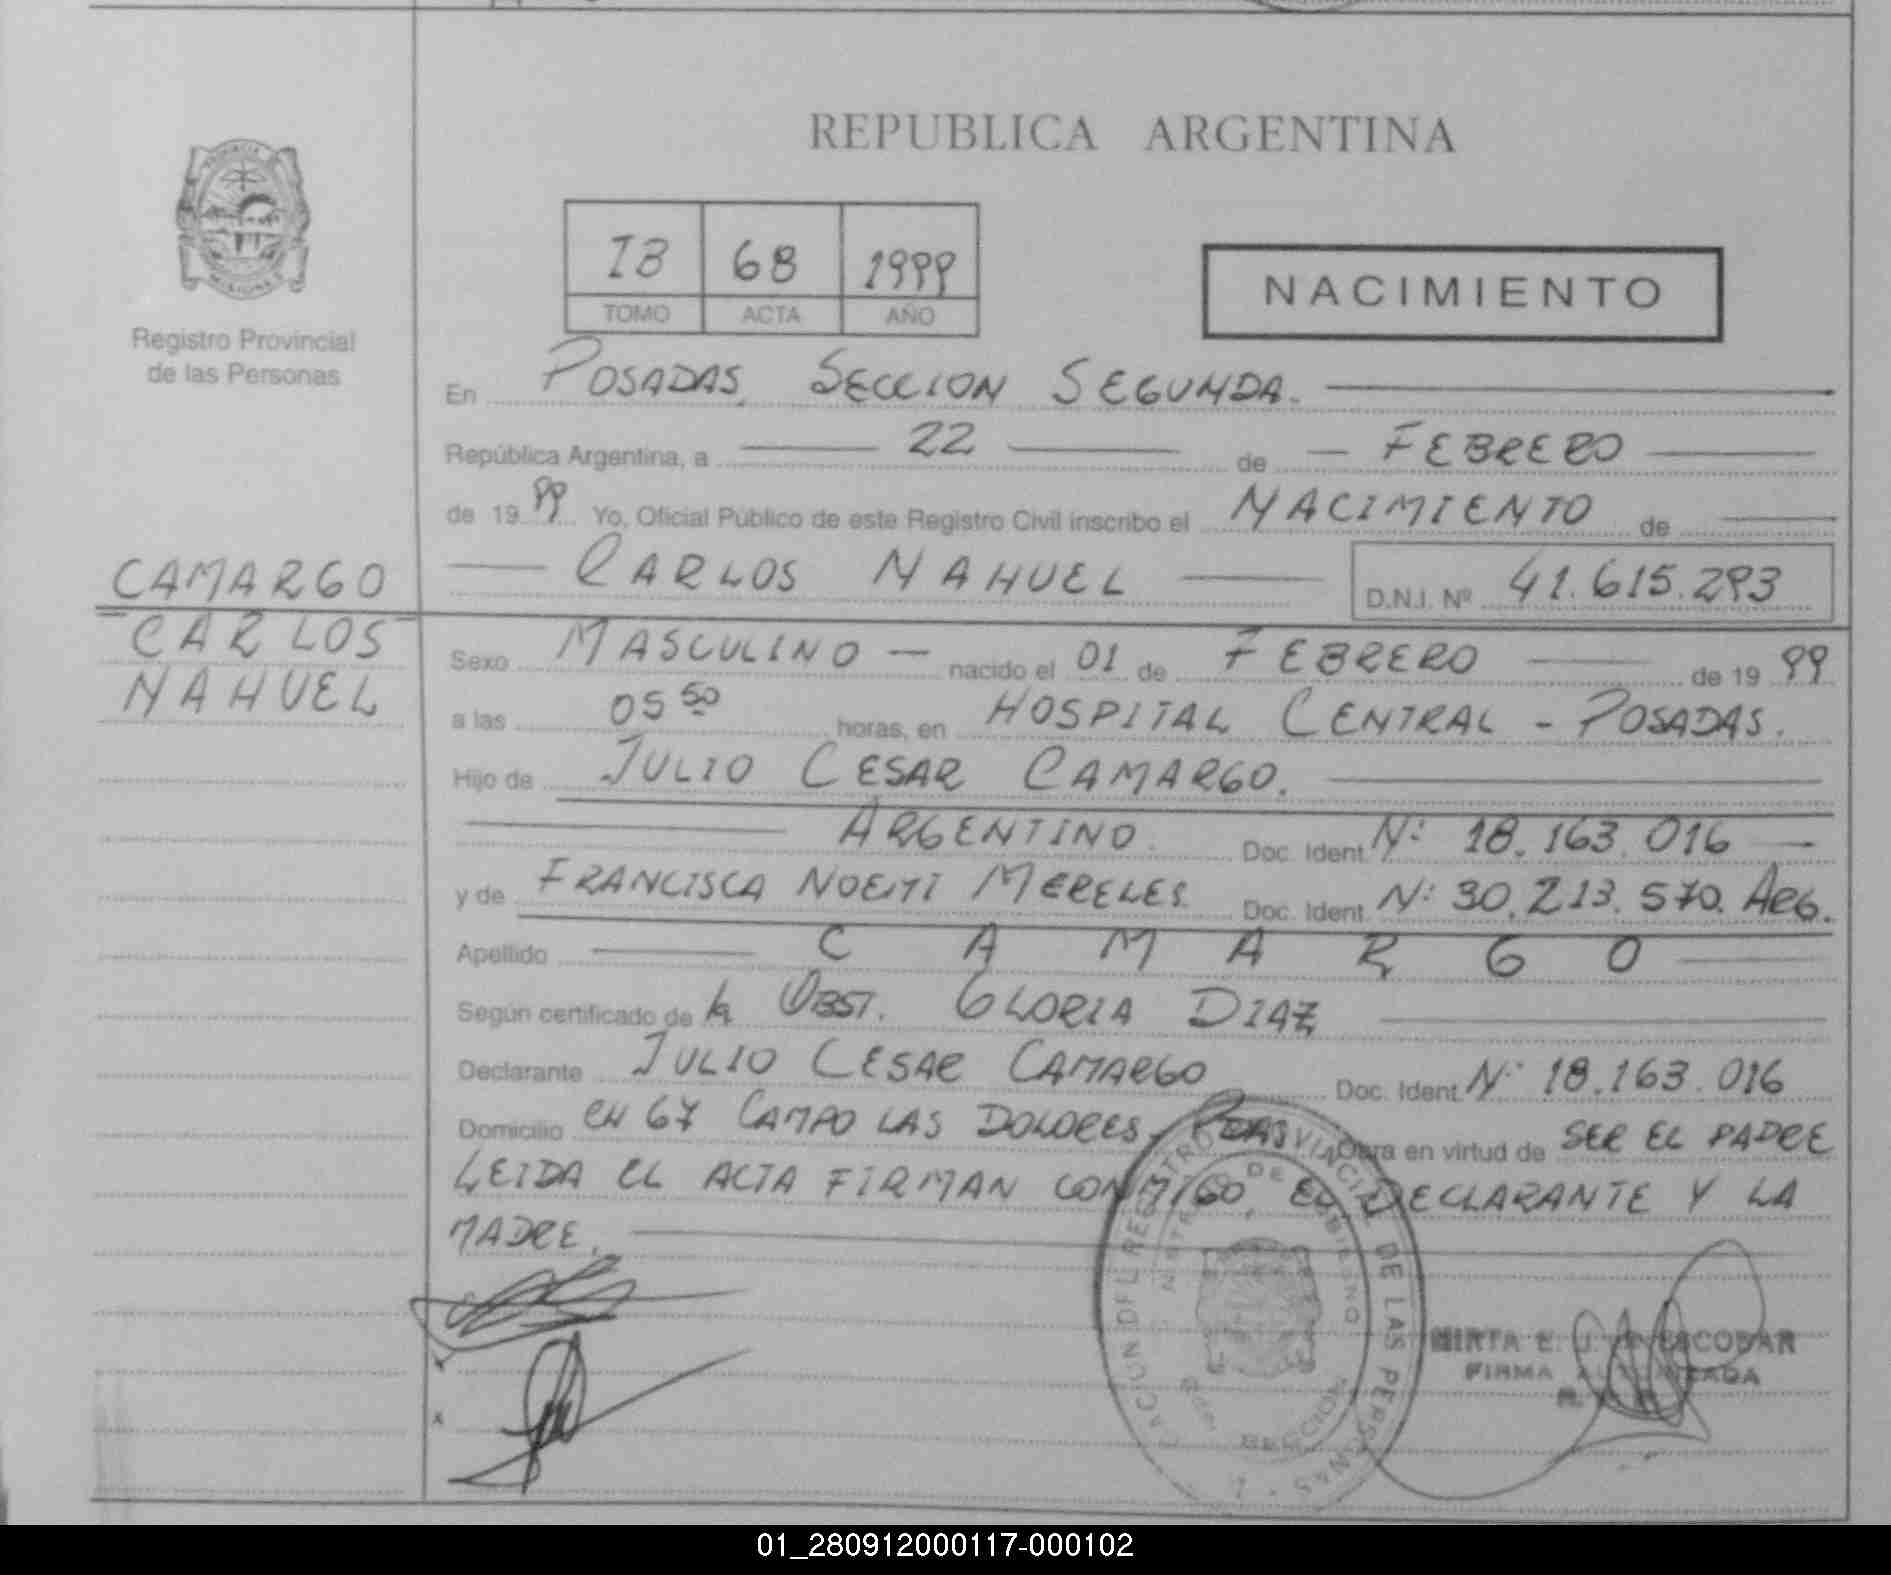 REPUBLICA ARGENTINA
IB 68 1999
TOMO ACTA AÑO
NACIMIENTO
Registro Provincial
de las Personas
En POSADAS, SECCION SEGUNDA.
República Argentina, a 22 de FEBRERO
de 1999 Yo, Oficial Público de este Registro Civil inscribo el NACIMIENTO de
CARLOS NAHUEL D.N.I. Nº 41.615.293
CAMARGO
CARLOS
NAHUEL
Sexo MASCULINO nacido el 01 de FEBRERO de 1999
a las 05 50 horas, en HOSPITAL CENTRAL - POSADAS.
Hijo de JULIO CESAR CAMARGO.
ARGENTINO. Doc. Ident. Nº 18.163.016
y de FRANCISCA NOEMI MERELES Doc. Ident. Nº 30.213.570. ARG.
Apellido CAMARGO
Según certificado de la OBST. GLORIA DIAZ
Declarante JULIO CESAR CAMARGO Doc. Ident. Nº 18.163.016
Domicilio CH 67 CAMPO LAS DOLORES, PDAS Obra en virtud de SER EL PADRE
LEIDA EL ACTA FIRMAN CONMIGO EL DECLARANTE Y LA
MADRE.
MIRTA E. J. ESCOBAR
FIRMA AUTORIZADA
REGISTRO PROVINCIAL DE LAS PERSONAS
01_280912000117-000102